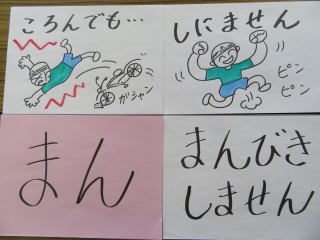 ころんでも…
ガシャン
しにません
ピン
ピン
まん
まんびき
しません